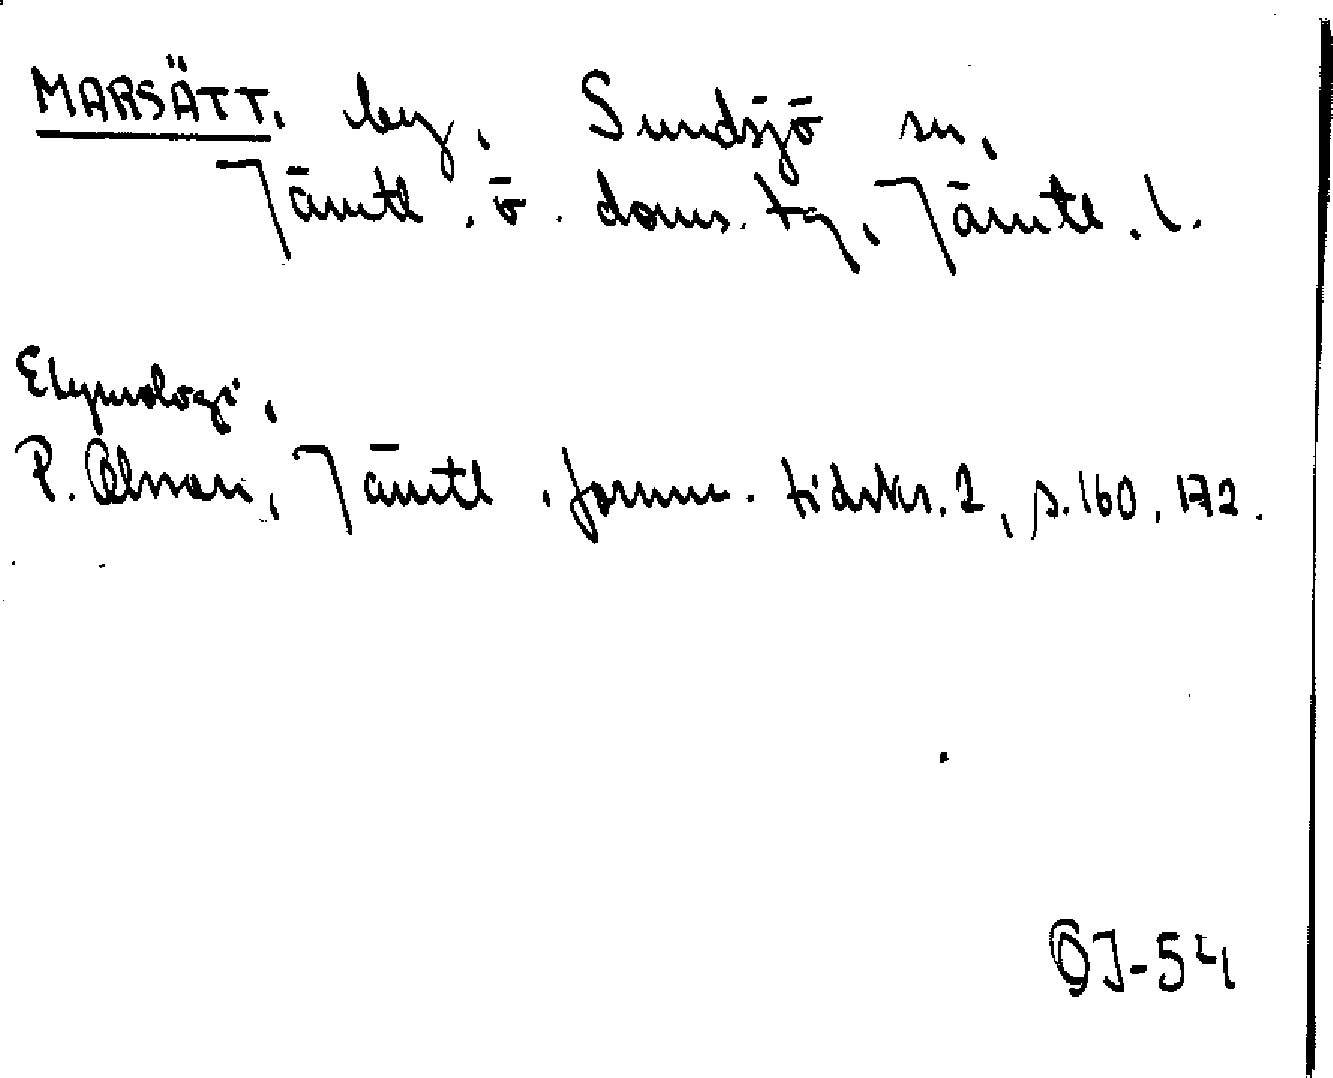 MARSÄTT, by, Sundsjö sn,
Jämtl. ö. doms. tg, Jämtl. l.
Etymologi,
P. Olsson, Jämtl. fornm. tidskr. 2, s. 160, 172.
OJ-54